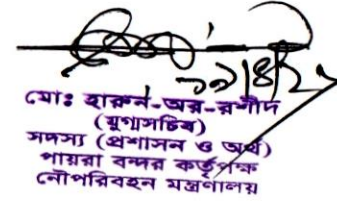 ১৯/৪/২১
মোঃ হারুন-অর-রশীদ
(যুগ্মসচিব)
সদস্য (প্রশাসন ও অর্থ)
পায়রা বন্দর কর্তৃপক্ষ
নৌপরিবহন মন্ত্রণালয়